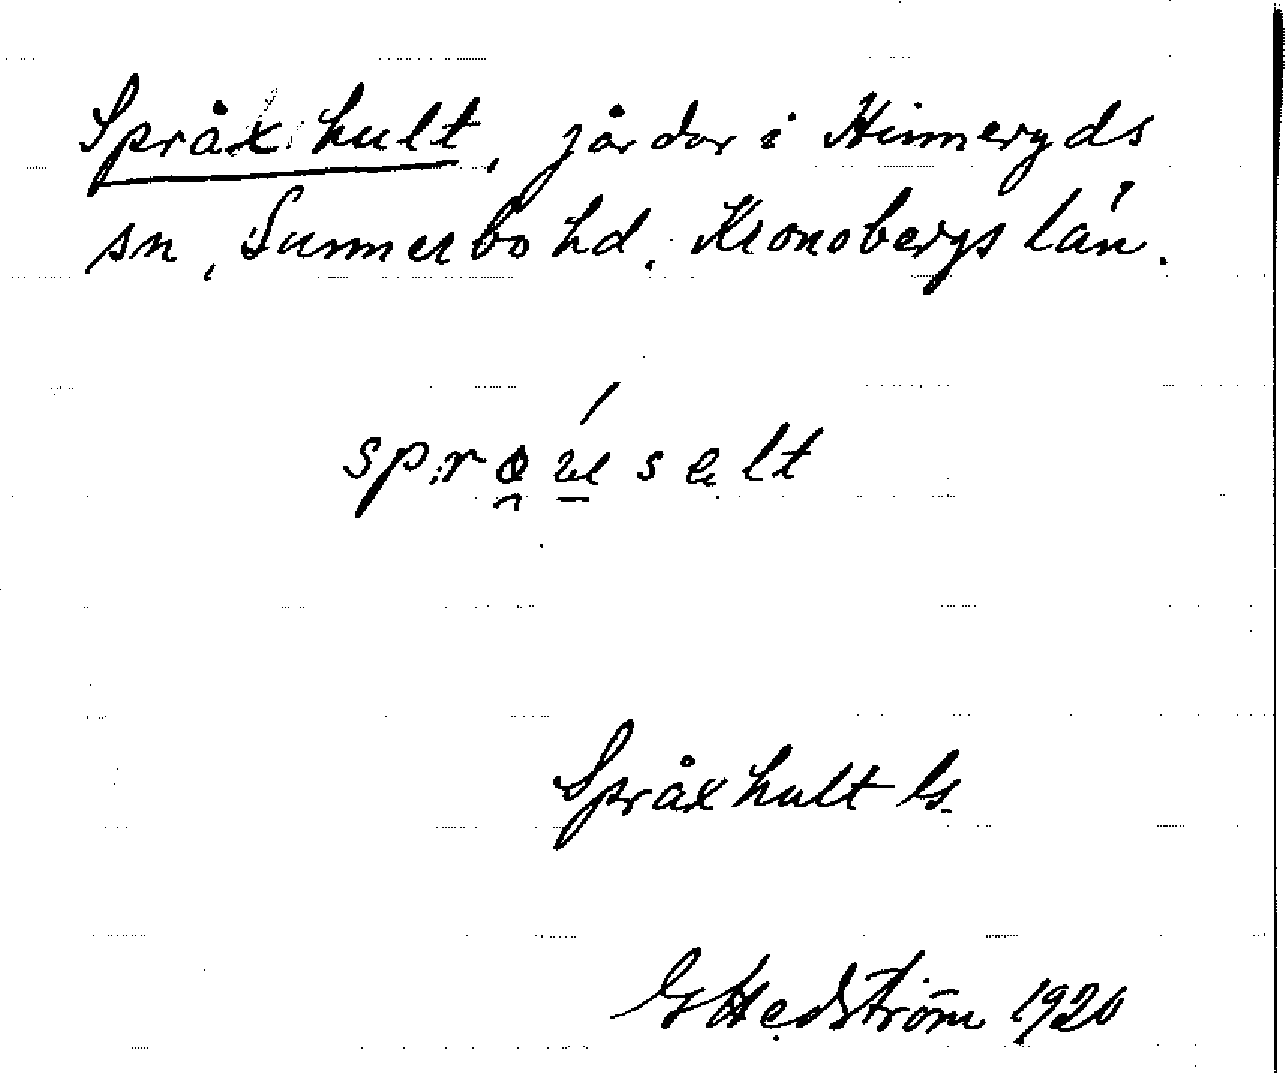 Språxhult, jårdar i Hinneryds
sn, Sunnerbo hd. Kronobergs län.
Språxhult ls.
G Hedström 1920